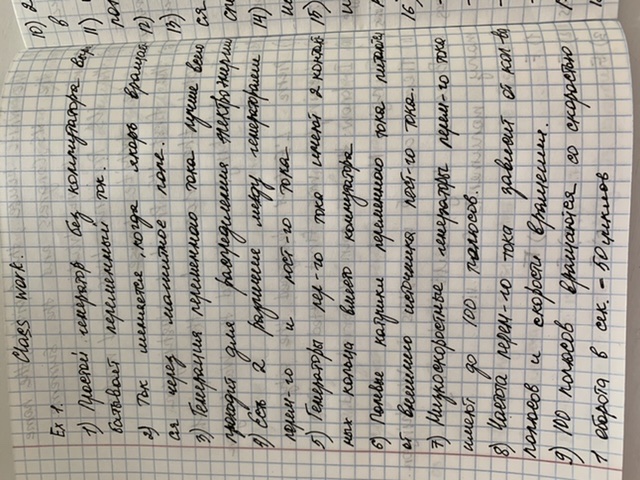 Class work.
Ex 1.
1) Простой генератор без коммутатора выра
батывает переменный ток.
2) Ток меняется, когда якорь вращает
ся через магнитное поле.
3) Генерация переменного тока лучше всего
подходит для распределения электроэнергии
4) Есть 2 различие между генераторами
перем-го и пост-го тока.
5) Генераторы пер-го тока имеют 2 контакт
ных кольца вместо коммутатора
6) Полевые катушки переменного тока питаются
от внешнего источника пост-го тока.
7) Низкоскоростные генераторы перем-го тока
имеют до 100 полюсов.
8) Частота перем-го тока зависит от кол-ва
полюсов и скорости вращения.
9) 100 полюсов вращаются со скоростью
1 оборота в сек. - 50 циклов
10) 2
в
11)
12)
13)
ся
14)
15)
16